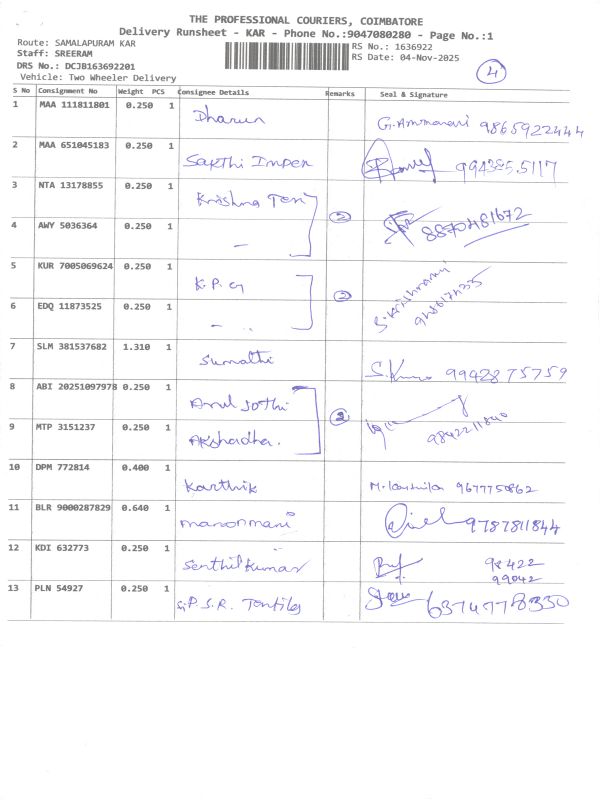 THE PROFESSIONAL COURIERS, COIMBATORE
Delivery Runsheet - KAR - Phone No.:9047080280 - Page No.:1
Route: SAMALAPURAM KAR RS No.: 1636922
Staff: SREERAM RS Date: 04-Nov-2025
DRS No.: DCJB163692201 4
Vehicle: Two Wheeler Delivery
S No Consignment No Weight PCS Consignee Details Remarks Seal & Signature
1 MAA 111811801 0.250 1 Dharun G. Ammanani 9865922444
2 MAA 651045183 0.250 1 Sakthi Impex 994385.5117
3 NTA 13178855 0.250 1 Krishna Tex 2 8870481672
4 AWY 5036364 0.250 1 –
5 KUR 7005069624 0.250 1 K.P.G 2
6 EDQ 11873525 0.250 1 –
7 SLM 381537682 1.310 1 Sumathi 9942875759
8 ABI 20251097978 0.250 1 Arul Jothi 2
9 MTP 3151237 0.250 1 Akshadha. 9842211840
10 DPM 772814 0.400 1 Karthik 9677750862
11 BLR 9000287829 0.640 1 manonmani 9787811844
12 KDI 632773 0.250 1 Senthilkumar 98422
99042
13 PLN 54927 0.250 1 P.S.R. 6374778330